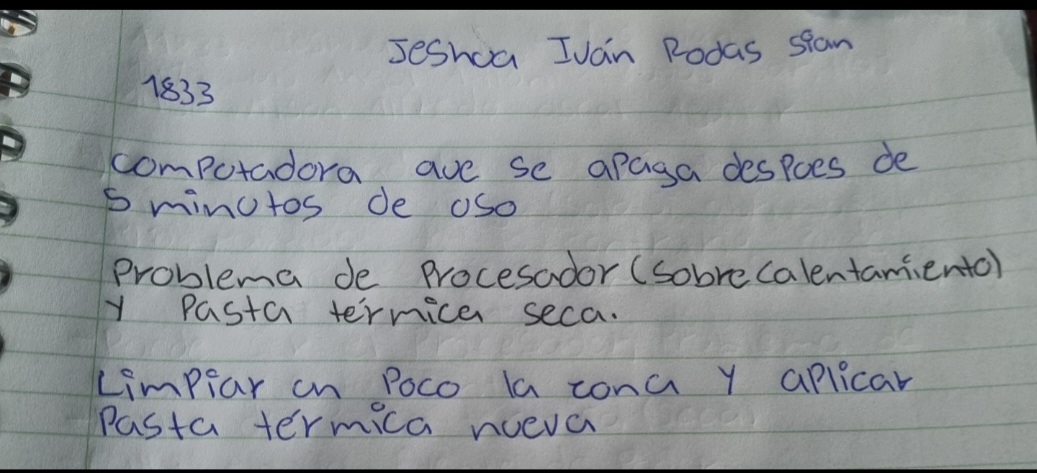 Jeshua Iván Rodas Sian
1833
computadora que se apaga despues de
5 minutos de uso
Problema de Procesador (sobrecalentamiento)
y Pasta térmica seca.
Limpiar un Poco la zona y aplicar
Pasta térmica nueva